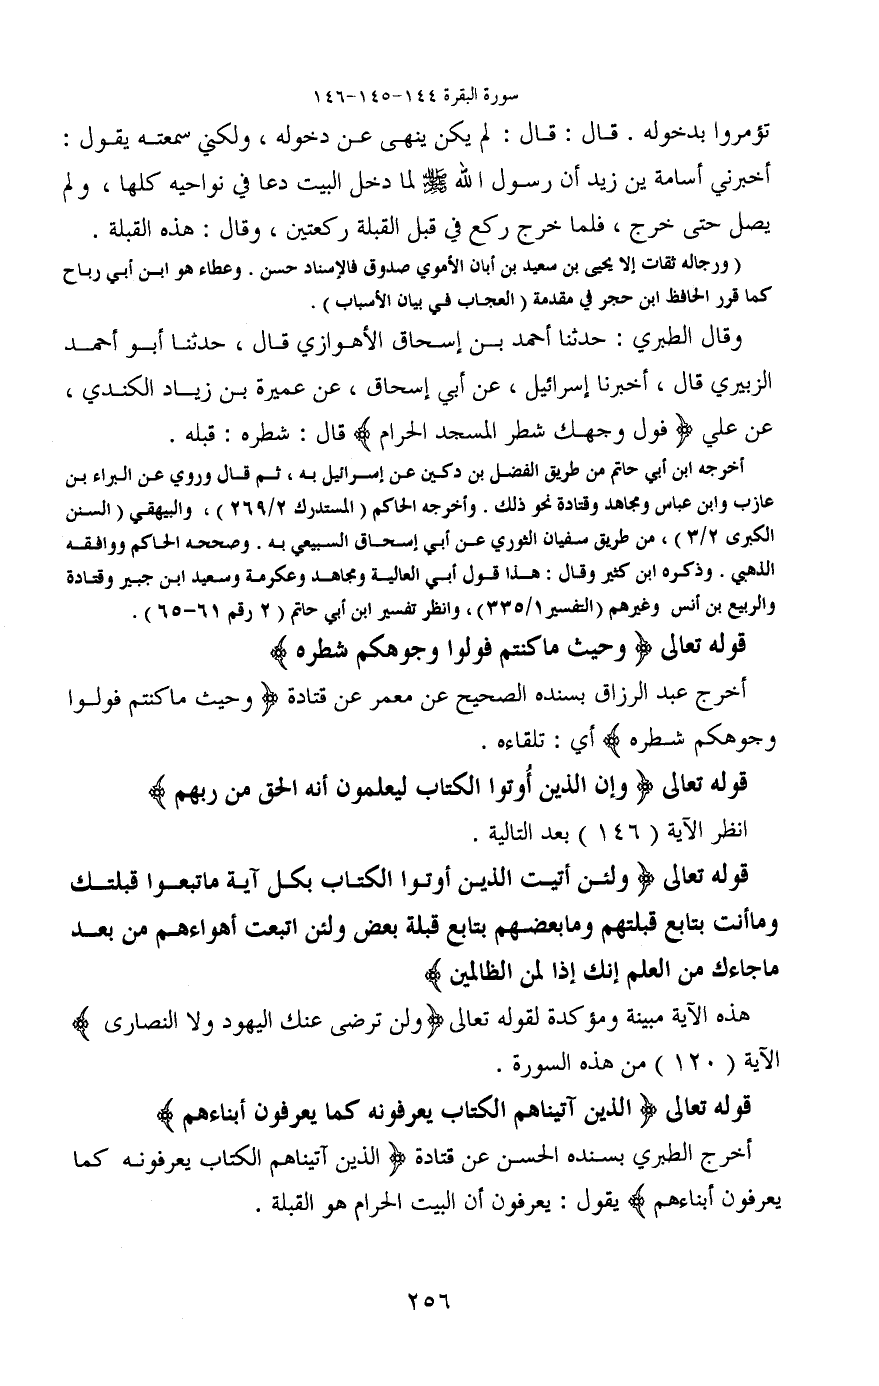 سورة البقرة ١٤٤-١٤٥-١٤٦
تؤمروا بدخوله . قال : قال : لم يكن ينهى عن دخوله ، ولكني سمعته يقول :
أخبرني أسامة بن زيد أن رسول الله ﷺ لما دخل البيت دعا في نواحيه كلها ، ولم
يصل حتى خرج ، فلما خرج ركع في قبل القبلة ركعتين ، وقال : هذه القبلة .
( ورجاله ثقات إلا يحيى بن سعيد بن أبان الأموي صدوق فالإسناد حسن . وعطاء هو ابن أبي رباح
كما قرر الحافظ ابن حجر في مقدمة ( العجاب في بيان الأسباب ) .
وقال الطبري : حدثنا أحمد بن إسحاق الأهوازي قال ، حدثنا أبو أحمد
الزبيري قال ، أخبرنا إسرائيل ، عن أبي إسحاق ، عن عميرة بن زياد الكندي ،
عن علي ﴿ فول وجهك شطر المسجد الحرام ﴾ قال : شطره : قبله .
أخرجه ابن أبي حاتم من طريق الفضل بن دكين عن إسرائيل به ، ثم قال وروي عن البراء بن
عازب وابن عباس ومجاهد وقتادة نحو ذلك . وأخرجه الحاكم ( المستدرك ٢٦٩/٢ ) ، والبيهقي ( السنن
الكبرى ٣/٢ ) ، من طريق سفيان الثوري عن أبي إسحاق السبيعي به . وصححه الحاكم ووافقه
الذهبي . وذكره ابن كثير وقال : هذا قول أبي العالية ومجاهد وعكرمة وسعيد ابن جبير وقتادة
والربيع بن أنس وغيرهم (التفسير ٣٣٥/١) ، وانظر تفسير ابن أبي حاتم ( ٢ رقم ٦١-٦٥ ) .
قوله تعالى ﴿ وحيث ماكنتم فولوا وجوهكم شطره ﴾
أخرج عبد الرزاق بسنده الصحيح عن معمر عن قتادة ﴿ وحيث ماكنتم فولوا
وجوهكم شطره ﴾ أي : تلقاءه .
قوله تعالى ﴿ وإن الذين أُوتوا الكتاب ليعلمون أنه الحق من ربهم ﴾
انظر الآية ( ١٤٦ ) بعد التالية .
قوله تعالى ﴿ ولئن أتيت الذين أوتوا الكتاب بكل آية ماتبعوا قبلتك
وماأنت بتابع قبلتهم ومابعضهم بتابع قبلة بعض ولئن اتبعت أهواءهم من بعد
ماجاءك من العلم إنك إذا لمن الظالمين ﴾
هذه الآية مبينة ومؤكدة لقوله تعالى ﴿ولن ترضى عنك اليهود ولا النصارى ﴾
الآية ( ١٢٠ ) من هذه السورة .
قوله تعالى ﴿ الذين آتيناهم الكتاب يعرفونه كما يعرفون أبناءهم ﴾
أخرج الطبري بسنده الحسن عن قتادة ﴿ الذين آتيناهم الكتاب يعرفونه كما
يعرفون أبناءهم ﴾ يقول : يعرفون أن البيت الحرام هو القبلة .
٢٥٦